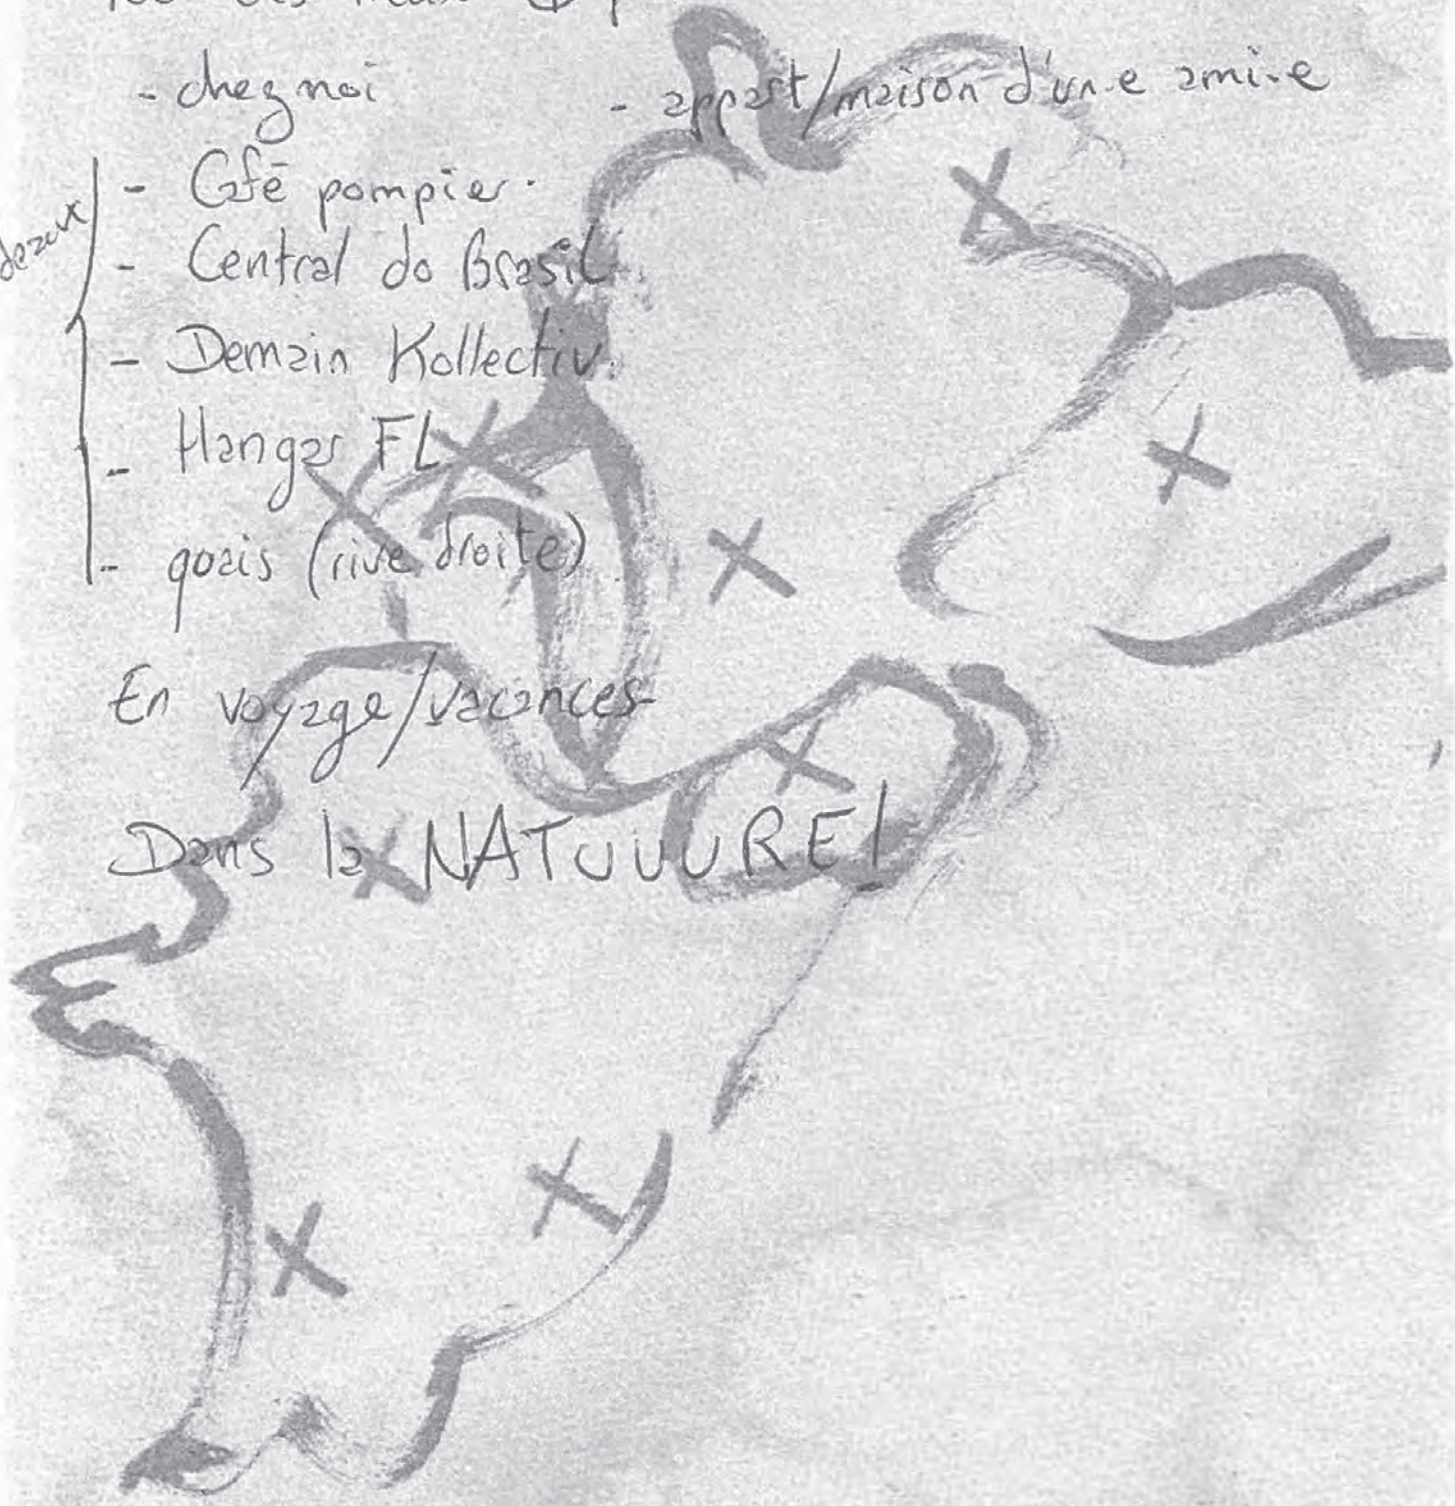 - chez moi
- appart/maison d'un·e ami·e
- Café pompier.
- Central do Brasil
- Demain Kollectiv.
- Hangar FL
- quais (rive droite)
En voyage/vacances
Dans la NATUUURE!